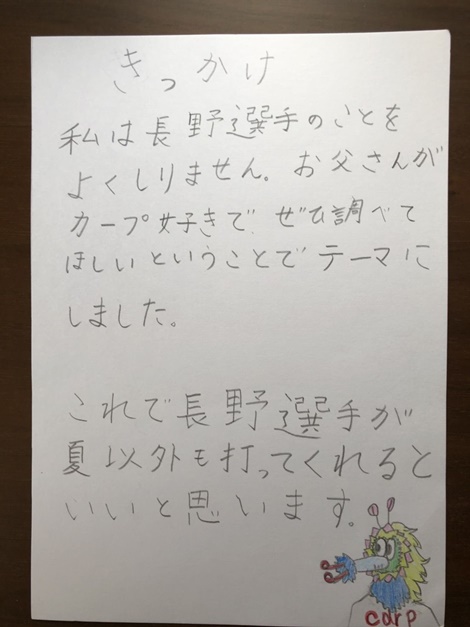 きっかけ
私は長野選手のことを
よくしりません。お父さんが
カープ好きで ぜひ調べて
ほしいということでテーマに
しました。
これで長野選手が
夏以外も打ってくれると
いいと思います。
carp